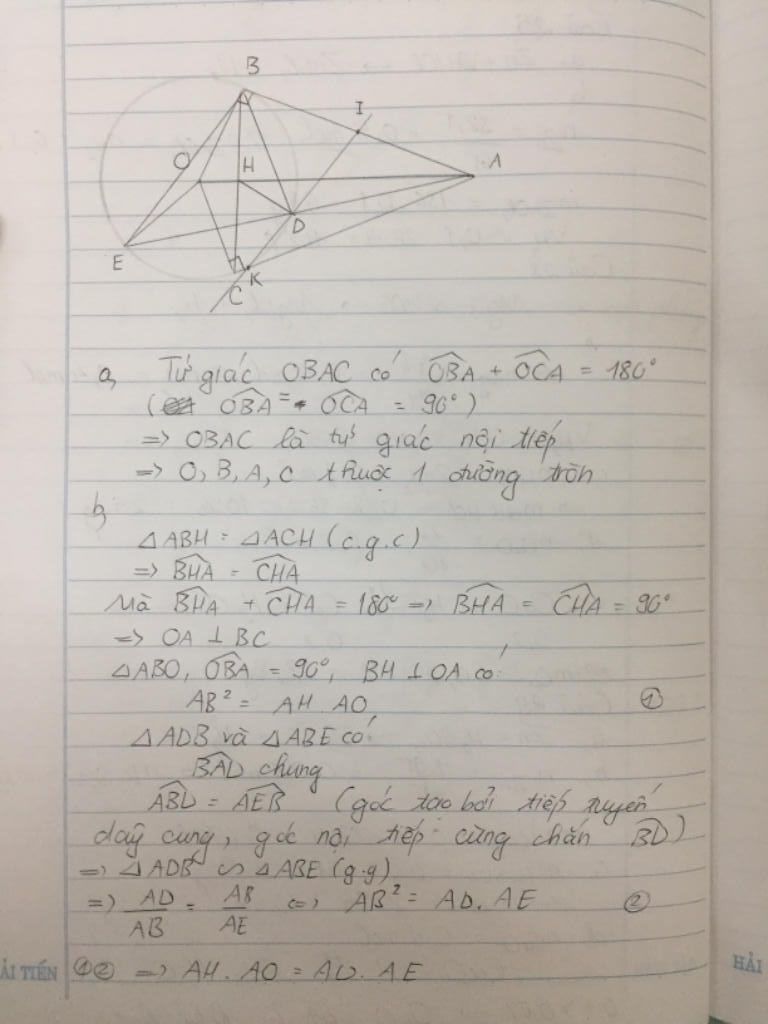 B
I
O
H
A
D
E
K
C
a, Tứ giác OBAC có OBA + OCA = 180°
( OBA = OCA = 90°)
=> OBAC là tứ giác nội tiếp
=> O, B, A, C thuộc 1 đường tròn
b,
△ABH = △ACH (c.g.c)
=> BHA = CHA
Mà BHA + CHA = 180° => BHA = CHA = 90°
=> OA ⊥ BC
△ABO, OBA = 90°, BH ⊥ OA có:
AB² = AH. AO ①
△ADB và △ABE có
BAD chung
ABD = AEB (góc tạo bởi tiếp tuyến
dây cung, góc nội tiếp cùng chắn BD)
=> △ADB ∽ △ABE (g.g)
=> AD/AB = AB/AE <=> AB² = AD. AE ②
①② => AH. AO = AD. AE
ẢI TIẾN
HẢI